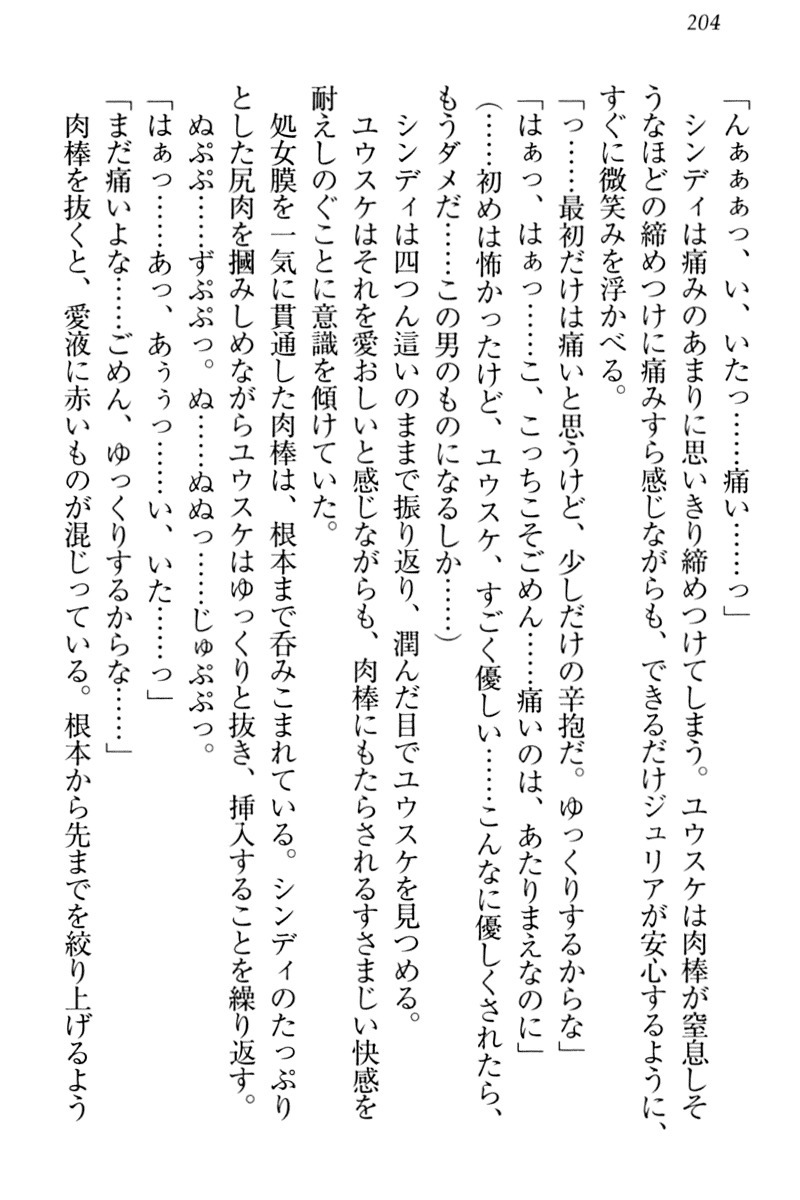 204
「んぁぁぁっ、い、いたっ……痛い……っ」
シンディは痛みのあまりに思いきり締めつけてしまう。ユウスケは肉棒が窒息しそ
うなほどの締めつけに痛みすら感じながらも、できるだけジュリアが安心するように、
すぐに微笑みを浮かべる。
「っ……最初だけは痛いと思うけど、少しだけの辛抱だ。ゆっくりするからな」
「はぁっ、はぁっ……こ、こっちこそごめん……痛いのは、あたりまえなのに」
(……初めは怖かったけど、ユウスケ、すごく優しい……こんなに優しくされたら、
もうダメだ……この男のものになるしか……)
シンディは四つん這いのままで振り返り、潤んだ目でユウスケを見つめる。
ユウスケはそれを愛おしいと感じながらも、肉棒にもたらされるすさまじい快感を
耐えしのぐことに意識を傾けていた。
処女膜を一気に貫通した肉棒は、根本まで呑みこまれている。シンディのたっぷり
とした尻肉を摑みしめながらユウスケはゆっくりと抜き、挿入することを繰り返す。
ぬぷぷ……ずぷぷっ。ぬ……ぬぬっ……じゅぷぷっ。
「はぁっ……あっ、あぅぅっ……い、いた……っ」
「まだ痛いよな……ごめん、ゆっくりするからな……」
肉棒を抜くと、愛液に赤いものが混じっている。根本から先までを絞り上げるよう